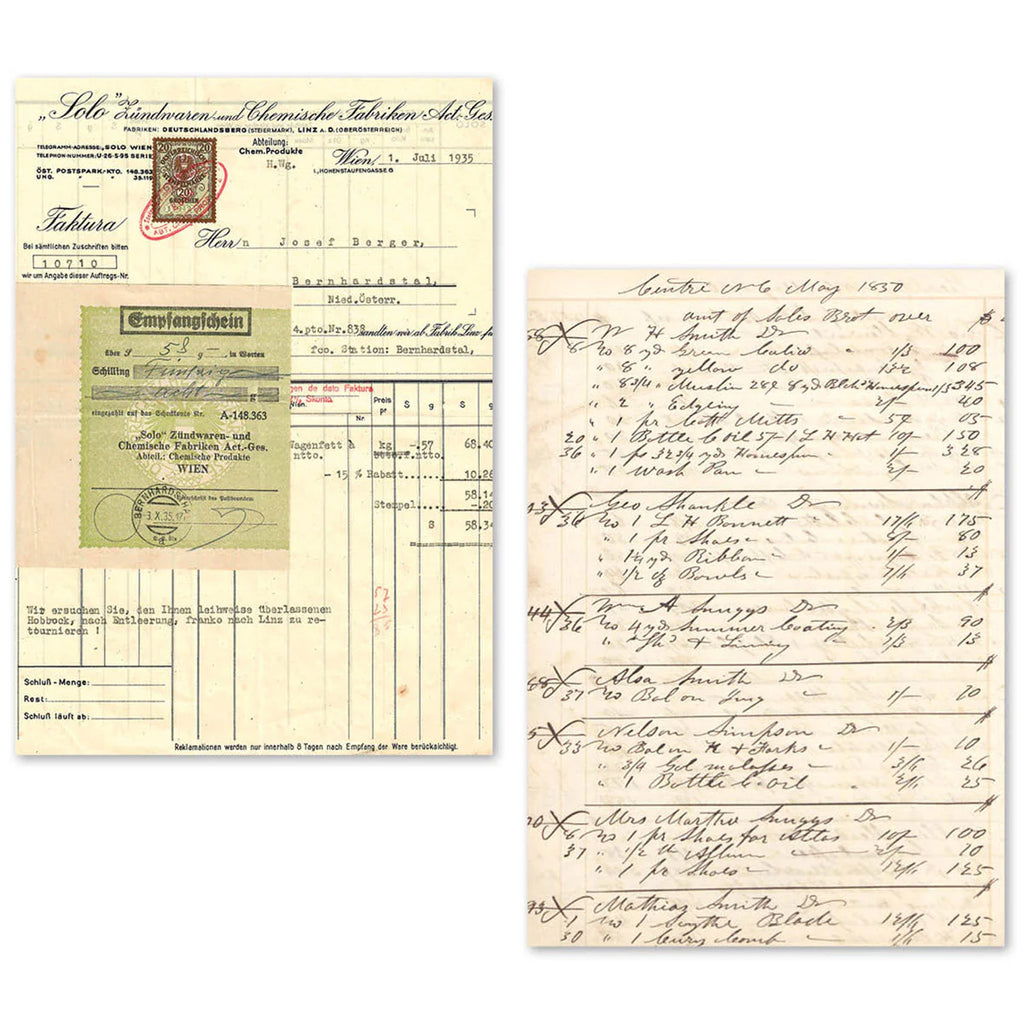 „Solo" Zündwaren- und Chemische Fabriken Act.-Ges.
FABRIKEN: DEUTSCHLANDSBERG (STEIERMARK), LINZ A. D. (OBERÖSTERREICH)
TELEGRAMM-ADRESSE „SOLO WIEN
TELEPHON-NUMMER: U-26-5-95 SERIE
ÖST. POSTSPARK.-KTO. 148.363
UNG.
Abteilung:
Chem. Produkte
H.Wg.
Wien, 1. Juli 1935
I., HOHENSTAUFENGASSE 6
20 20
20
GROSCHEN
Faktura
Bei sämtlichen Zuschriften bitten
10710
wir um Angabe dieser Auftrags-Nr.
Herrn Josef Berger,
Bernhardstal,
Nied.Österr.
4.pto.Nr.838 sandten wir ab Fabrik Linz
fco. Station: Bernhardstal,
Empfangschein
über S 58 g - , in Worten
Schilling Fünfzig
acht g
eingezahlt auf das Scheckkonto Nr. A-148.363
„Solo" Zündwaren- und
Chemische Fabriken Act.-Ges.
Abteil.: Chemische Produkte
WIEN
Unterschrift des Postbeamten
BERNHARDSTHAL
3.X.35.17
gen de dato Faktura
Skonto
Preis
pr S g S g
Nr
Wagenfett à kg -.57 68.40
ntto. ntto.
- 15 % Rabatt.... 10.26
58.14
Stempel.... -.20
S 58.34
Wir ersuchen Sie, den Ihnen leihweise überlassenen
Hobbock, nach Entleerung, franko nach Linz zu re-
tournieren !
Schluß - Menge:
Rest:
Schluß läuft ab:
Reklamationen werden nur innerhalb 8 Tagen nach Empfang der Ware berücksichtigt.
Centre N C May 1850
amt of Sales Brot over $
58 W H Smith Dr
8 To 8 yd Green Calico 1/3 100
" 8 " yellow do 108
" 8 3/4 " Muslin 345
" 2 " Edging 2/- 40
" 1 pr Cott Mitts 5d 05
20 " 1 Bottle C oil 1 L H Hat 10/- 150
36 " 1 ps 32 3/4 yds Homespun 328
" 1 Wash Pan 2/- 20
13 Geo Shankle Dr $
36 To 1 L H Bonnett 17/6 175
" 1 pr Shoes 8/- 80
" 1 1/4 yd Ribbon 1/- 13
" 1/2 dz Bowls 7/6 37
44 Wm A Snuggs Dr $
36 To 4 yd Summer Coating 2/3 90
" & Lining 1/3 13
68 Alsa Smith Dr $
37 To Bal on 1/- 20
5 Nelson Simpson Dr $
33 To Bal on K & Forks 1/- 10
" 3/4 Gal molasses 3/6 26
" 1 Bottle C Oil 2/6 25
20 Mrs Martha Snuggs Dr $
6 To 1 pr Shoes for 10/- 100
37 " 1/2 lb Allum 2/- 10
" 1 pr Shoes 12/6 125
73 Mathias Smith Dr $
1 To 1 Scythe Blade 12/6 125
30 " 1 Curry Comb 1/6 15